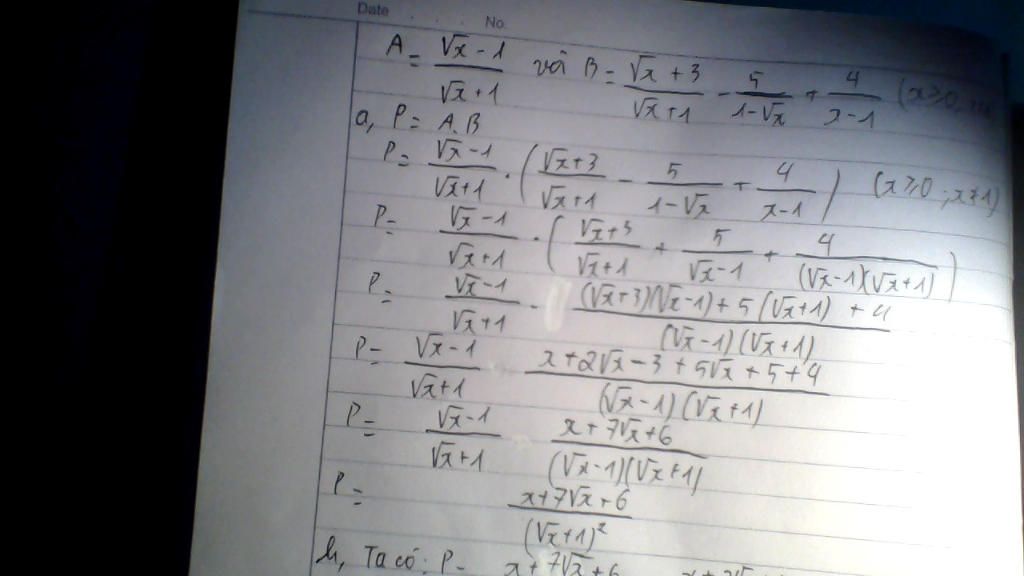 Date . . . . No.
A = \frac{√x - 1}{√x + 1} và B = \frac{√x + 3}{√x + 1} - \frac{5}{1 - √x} + \frac{4}{x - 1} (x ≥ 0,
a, P = A.B
P = \frac{√x - 1}{√x + 1} . ( \frac{√x + 3}{√x + 1} - \frac{5}{1 - √x} + \frac{4}{x - 1} ) (x ≥ 0 ; x ≠ 1)
P = \frac{√x - 1}{√x + 1} . ( \frac{√x + 3}{√x + 1} + \frac{5}{√x - 1} + \frac{4}{(√x - 1)(√x + 1)} )
P = \frac{√x - 1}{√x + 1} . \frac{(√x + 3)(√x - 1) + 5(√x + 1) + 4}{(√x - 1)(√x + 1)}
P = \frac{√x - 1}{√x + 1} \frac{x + 2√x - 3 + 5√x + 5 + 4}{(√x - 1)(√x + 1)}
P = \frac{√x - 1}{√x + 1} \frac{x + 7√x + 6}{(√x - 1)(√x + 1)}
P = \frac{x + 7√x + 6}{(√x + 1)²}
b, Ta có: P = x + 7√x + 6